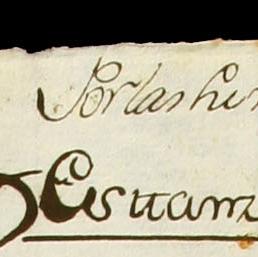 Por las her
Esttam